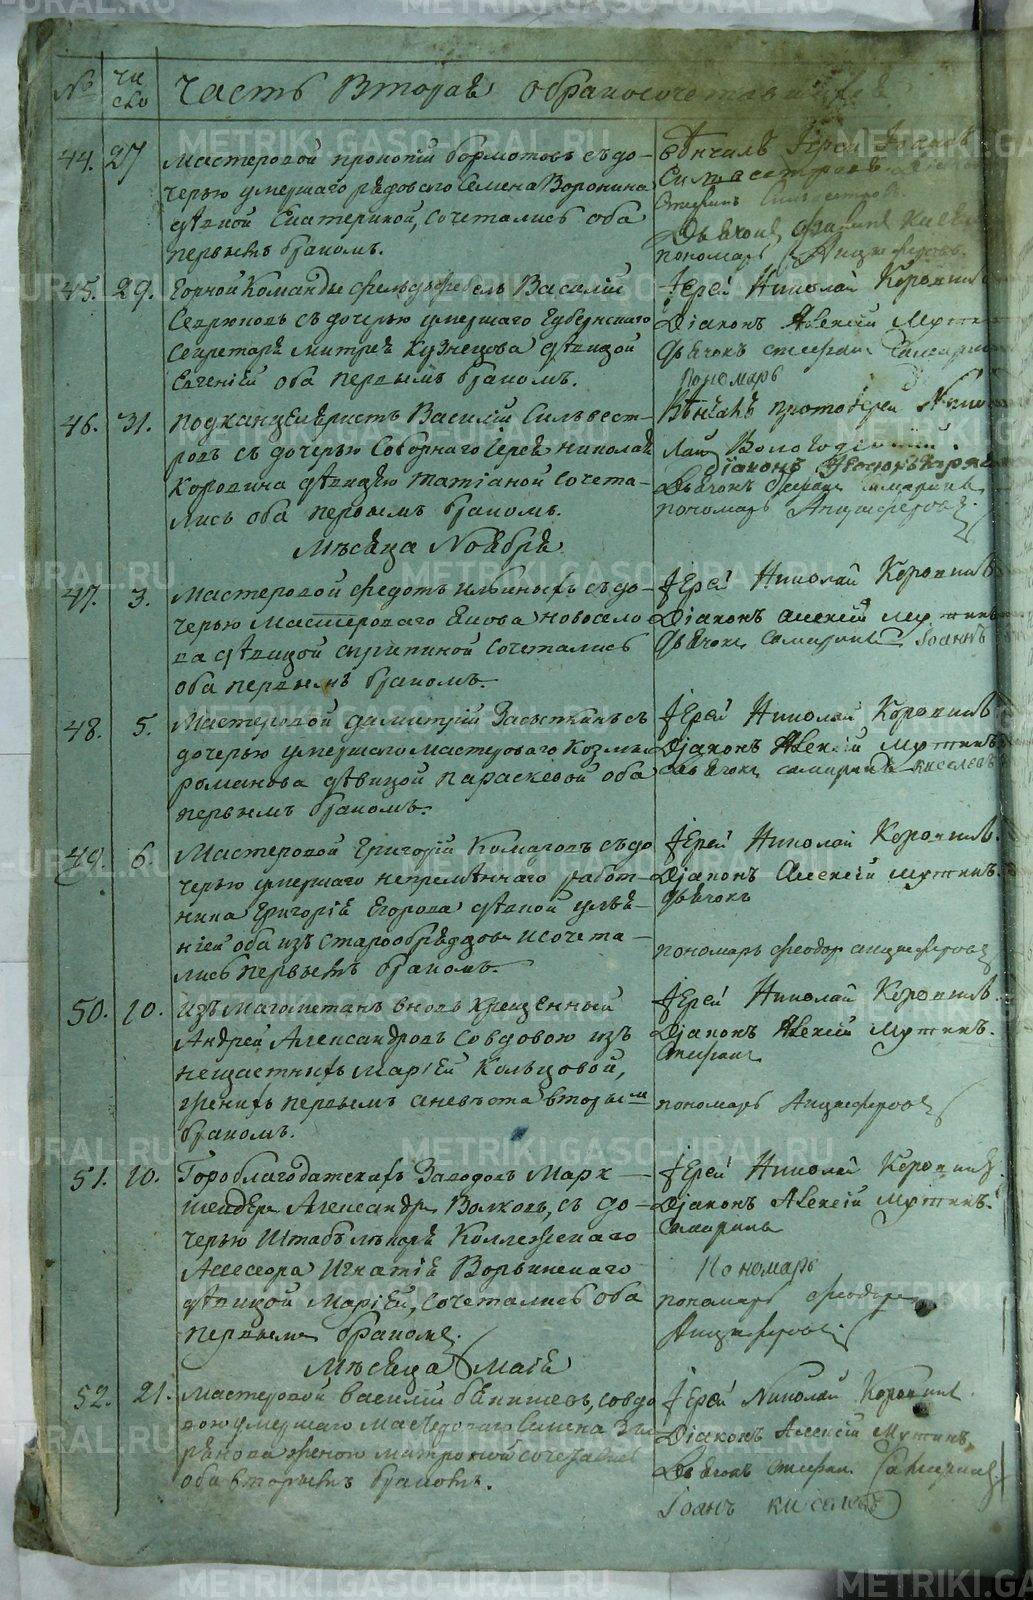 № чи сло Часть Вторая о бракосочетавшихся
44. 27 Мастеровой Прокопий Бормотовъ съ до-
черью умершаго рядоваго Семена Воронина
девицой Екатериной, сочетались оба
первымъ бракомъ.
Венчалъ Іерей Іоаннъ
Сильвестровъ
Дьячокъ
пономарь Анциферовъ.
45. 29. Горной Команды фельдфебель Василій
Севрюковъ съ дочерью умершаго Губернскаго
Секретаря Митрея Кузнецова девицой
Евгеніей оба первымъ бракомъ.
Іерей Николай Коровинъ
Діаконъ Алексій
Дьячокъ Стефанъ Самаринъ
Пономарь
46. 31. Подканцеляристъ Василій Сильвест-
ровъ съ дочерью Соборнаго Іерея Николая
Коровина девицею Татіаной сочета-
лись оба первымъ бракомъ.
Венчалъ протоіерей Нико
лай Вологодскій.
Діаконъ
Дьячокъ Стефанъ Самаринъ
пономарь Анциферовъ.
Месяца Ноября
47. 3. Мастеровой Федотъ Ильиныхъ съ до-
черью Мастероваго Якова Новосело
ва девицой сочетались
оба первымъ бракомъ.
Іерей Николай Коровинъ
Діаконъ Алексій
Дьячокъ Самаринъ Іоаннъ
48. 5. Мастеровой Димитрій Засыпкинъ съ
дочерью умершаго мастероваго Козмы
Романова девицой Параскевой оба
первымъ бракомъ.
Іерей Николай Коровинъ
Діаконъ Алексій Мутинъ
Дьячокъ Самаринъ Киселевъ
49. 6. Мастеровой Григорій Комаровъ съ до
черью умершаго непременнаго работ-
ника Григорія Егорова девицой Улья-
ніей оба изъ старообрядцовъ и сочета-
лись первымъ бракомъ.
Іерей Николай Коровинъ.
Діаконъ Алексій Мутинъ.
Дьячокъ
пономарь Феодоръ Анциферовъ
50. 10. Изъ магометанъ вновь крещенный
Андрей Александровъ со вдовою изъ
нещастныхъ Маріей Кольцовой,
женихъ первымъ а невеста вторымъ
бракомъ.
Іерей Николай Коровинъ.
Діаконъ Алексій Мутинъ.
Стефанъ
пономарь Анциферовъ
51. 10. Гороблагодатскихъ Заводовъ Марк-
шейдеръ Александръ Волковъ, съ до-
черью Штабъ лекаря Коллежскаго
Ассесора Игнатія Ворвинскаго
девицой Маріей, сочетались оба
первымъ бракомъ.
Іерей Николай Коровинъ.
Діаконъ Алексій Мутинъ.
Самаринъ
Пономарь
пономарь Феодоръ
Анциферовъ
Месяца Маія
52. 21. Мастеровой Василій со вдо
вою умершаго Мастероваго Семена
женою Матроной сочетались
оба вторымъ бракомъ.
Іерей Николай Коровинъ.
Діаконъ Алексій Мутинъ,
Дьячокъ Стефанъ Самаринъ
Іоанъ Киселевъ
METRIKI.GASO-URAL.RU